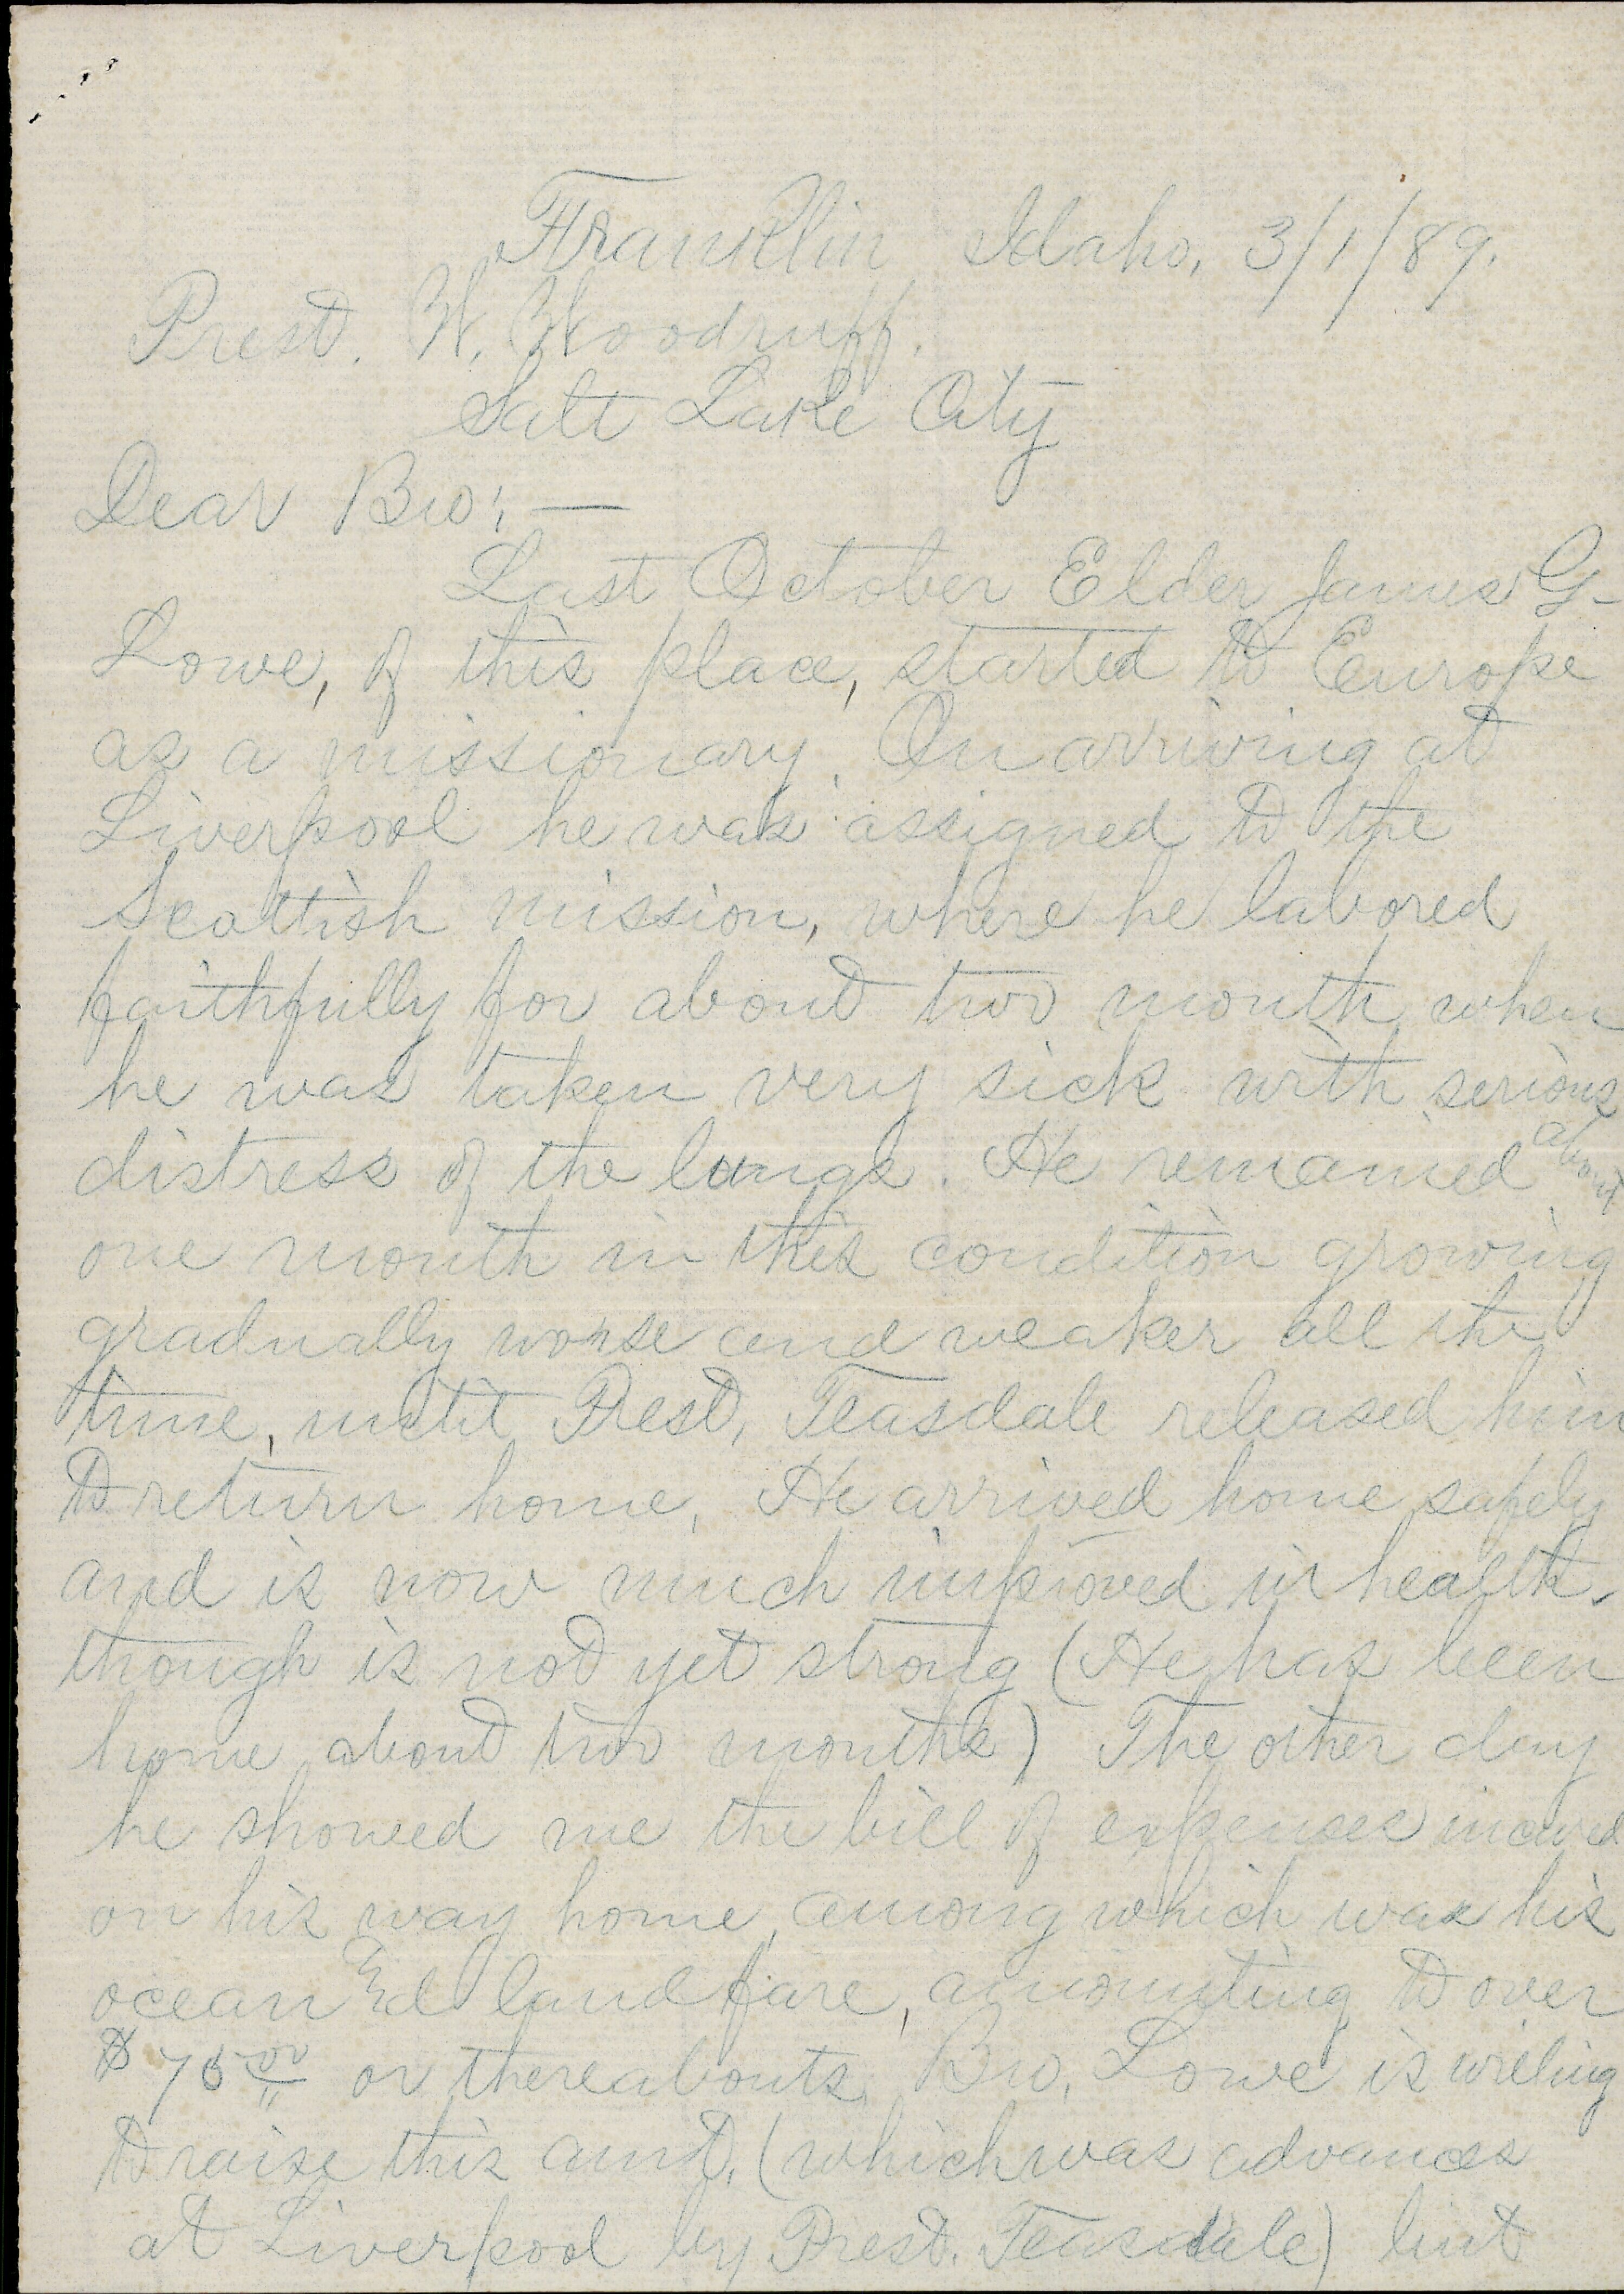 Franklin Idaho, 3/1/89.
Prest. W. Woodruff.
Salt Lake City
Dear Bro: —
Last October Elder James G-
Lowe, of this place, started to Europe
as a missionary. On arriving at
Liverpool he was assigned to the
Scottish mission, where he labored
faithfully for about two month, when
he was taken very sick with serious
distress of the lungs. He remained about
one month in this condition growing
gradually worse and weaker all the
time, until Prest, Teasdale released him
to return home, He arrived home safely
and is now much improved in health,
though is not yet strong (He has been
home about two months) The other day
he showed me the bill of expenses incurred
on his way home, among which was his
ocean & land fare, amounting to over
or thereabouts. Bro, Lowe is willing
to raise this amt, (which was advances
at Liverpool by Prest. Teasdale) but